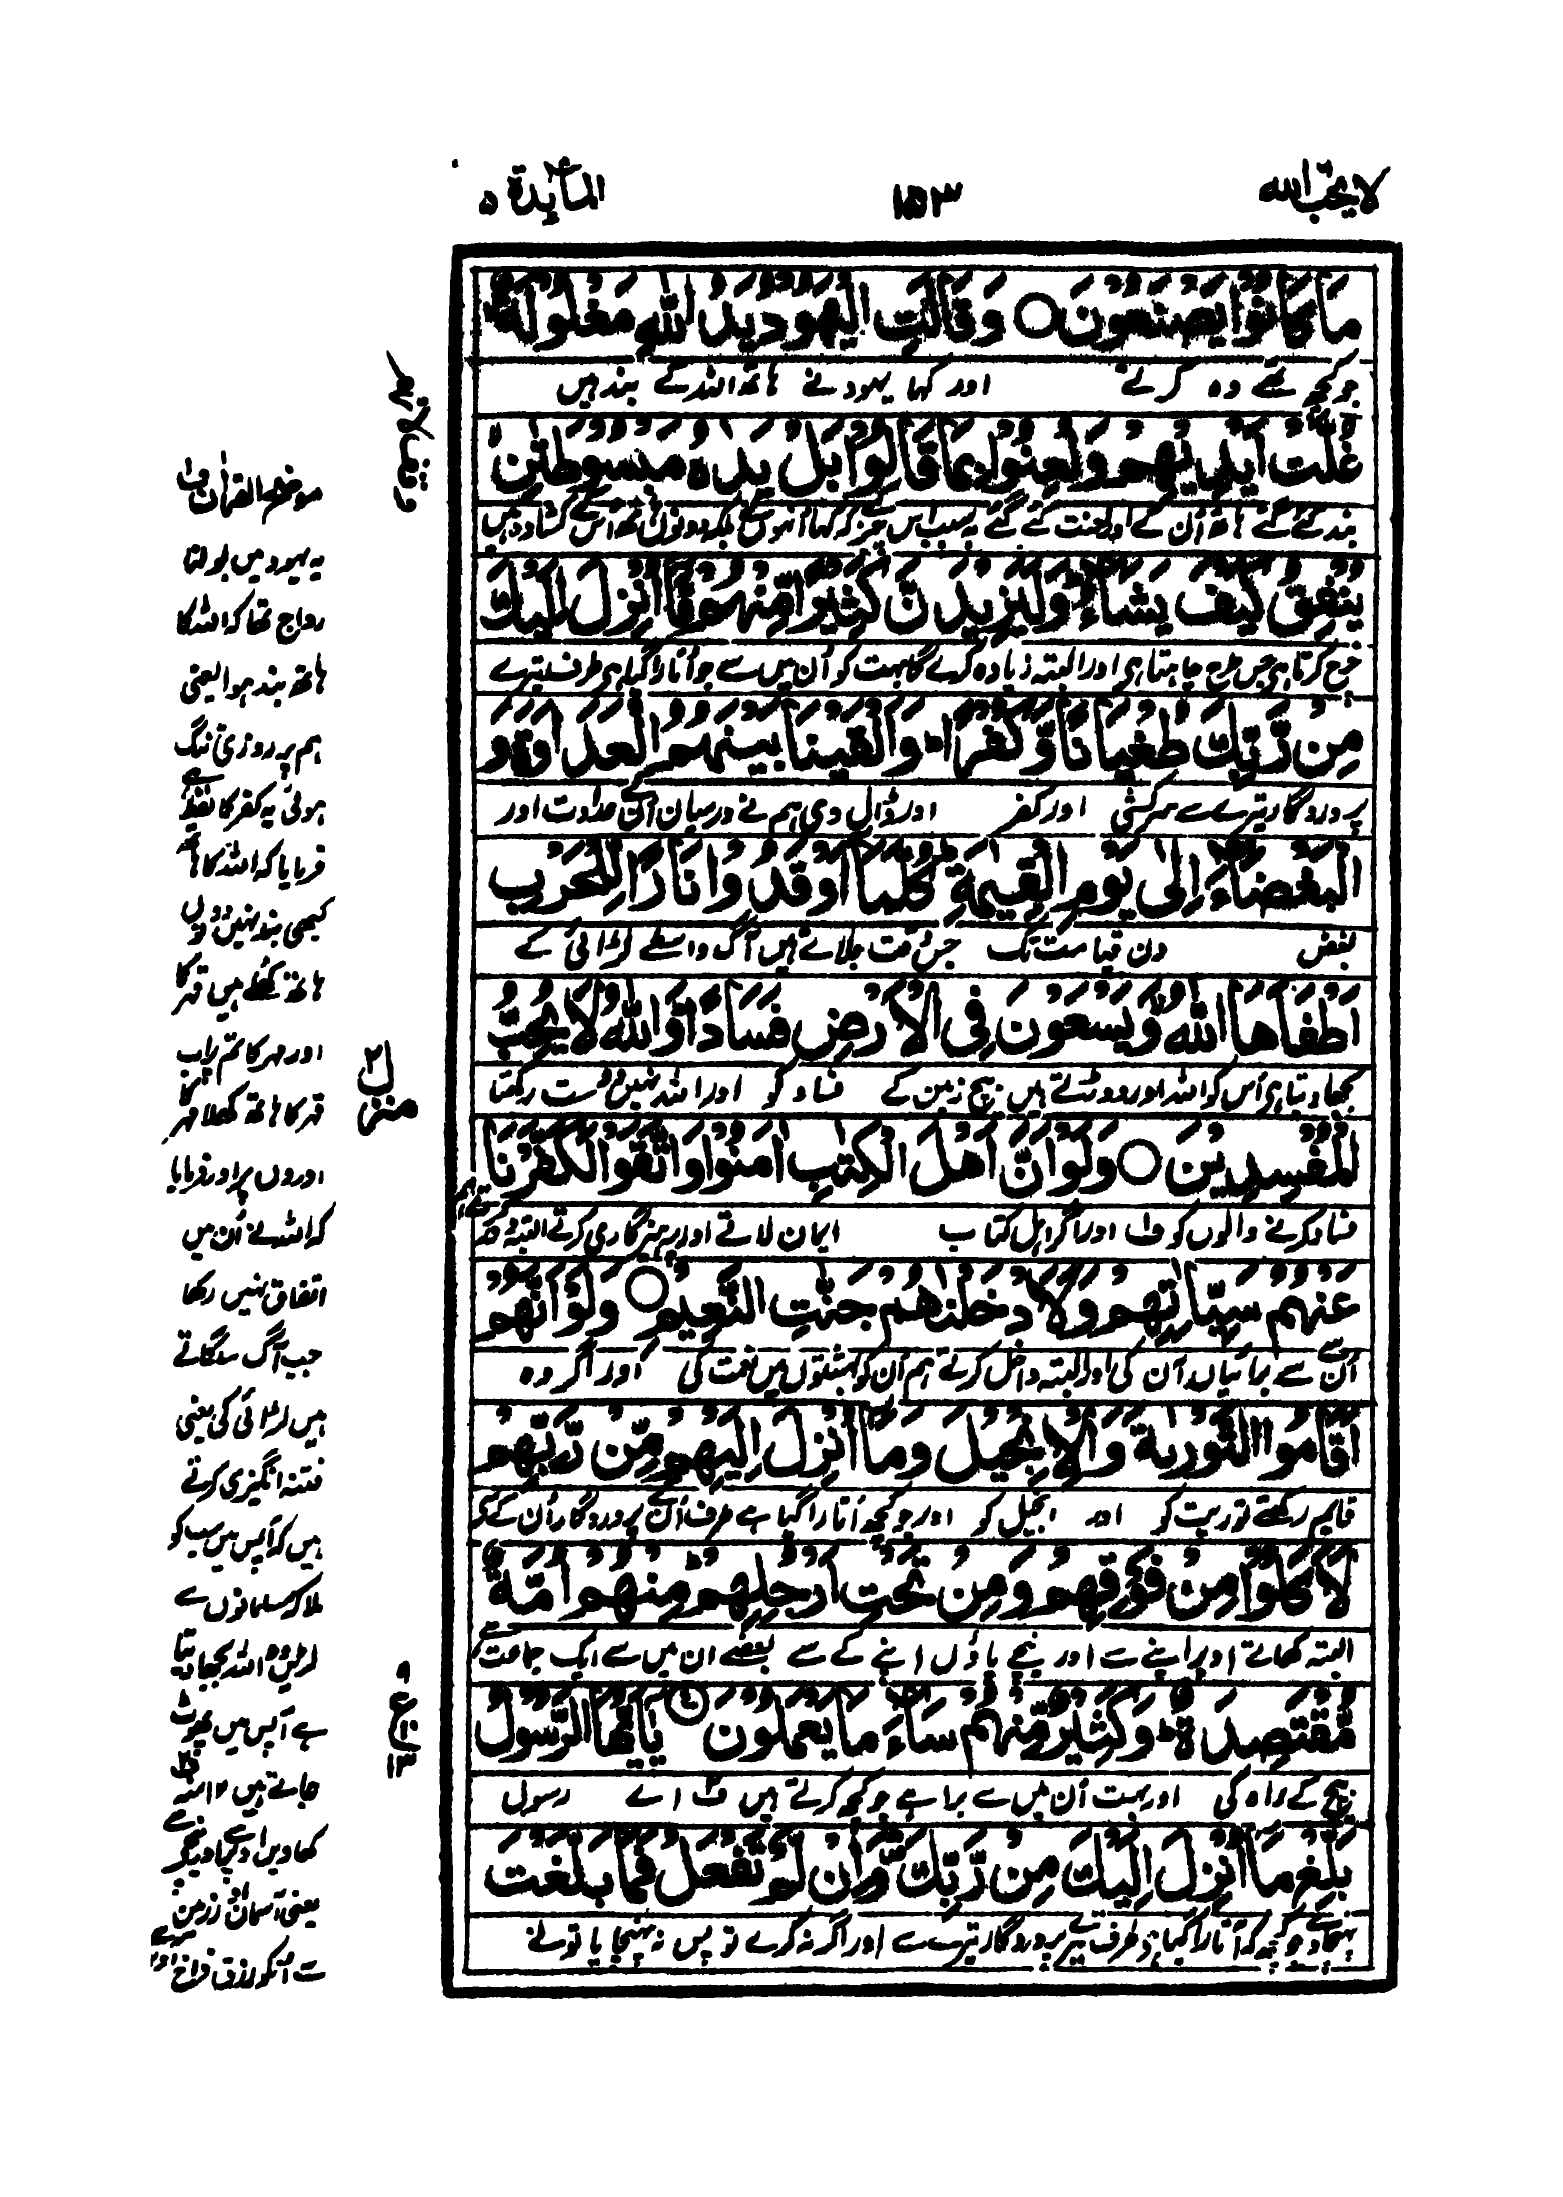 لا يحب الله
١٥٣
المآئدة ٥
مَا كَانُوْا يَصْنَعُوْنَ ○ وَقَالَتِ الْيَهُوْدُ يَدُ اللّٰهِ مَغْلُوْلَةٌ
جو کچھ تھے وہ کرتے اور کہا یہود نے ہاتھ اللہ کے بند ہیں
غُلَّتْ اَيْدِيْهِمْ وَلُعِنُوْا بِمَا قَالُوْا بَلْ يَدٰهُ مَبْسُوْطَتٰنِ
بند کئے گئے ہاتھ اُن کے اور لعنت کئے گئے بہ سبب اس چیز کہ کہا اُنہوں نے بلکہ دونوں ہاتھ اُس کے کشادہ ہیں
يُنْفِقُ كَيْفَ يَشَآءُ وَلَيَزِيْدَنَّ كَثِيْرًا مِّنْهُمْ مَّآ اُنْزِلَ اِلَيْكَ
خرچ کرتا ہی جس طرح چاہتا ہی اور البتہ زیادہ کرے گا بہت کو اُن میں سے جو اُتارا گیا ہی طرف تیرے
مِنْ رَّبِّكَ طُغْيَانًا وَّكُفْرًا ط وَاَلْقَيْنَا بَيْنَهُمُ الْعَدَاوَةَ وَ
پروردگار تیرے سے سرکشی اور کفر اور ڈال دی ہم نے درمیان اُن کے عداوت اور
الْبَغْضَآءَ اِلٰى يَوْمِ الْقِيٰمَةِ ط كُلَّمَآ اَوْقَدُوْا نَارًا لِّلْحَرْبِ
بغض دن قیامت تک جس وقت جلاتے ہیں آگ واسطے لڑائی کے
اَطْفَاَهَا اللّٰهُ وَيَسْعَوْنَ فِي الْاَرْضِ فَسَادًا وَاللّٰهُ لَا يُحِبُّ
بجھا دیتا ہی اُس کو اللہ اور دوڑتے ہیں بیچ زمین کے فساد کو اور اللہ نہیں دوست رکھتا
الْمُفْسِدِيْنَ ○ وَلَوْ اَنَّ اَهْلَ الْكِتٰبِ اٰمَنُوْا وَاتَّقَوْا لَكَفَّرْنَا
فساد کرنے والوں کو ف اور اگر اہل کتاب ایمان لاتے اور پرہیزگاری کرتے البتہ دور کرتے ہم
عَنْهُمْ سَيِّاٰتِهِمْ وَلَاَدْخَلْنٰهُمْ جَنّٰتِ النَّعِيْمِ ○ وَلَوْ اَنَّهُمْ
اُن سے برائیاں اُن کی اور البتہ داخل کرتے ہم اُن کو بہشتوں میں نعمت کی اور اگر وہ
اَقَامُوا التَّوْرٰىةَ وَالْاِنْجِيْلَ وَمَآ اُنْزِلَ اِلَيْهِمْ مِّنْ رَّبِّهِمْ
قایم رکھتے توریت کو اور انجیل کو اور جو کچھ اُتارا گیا ہے طرف اُن کے پروردگار اُن کے سے
لَاَكَلُوْا مِنْ فَوْقِهِمْ وَمِنْ تَحْتِ اَرْجُلِهِمْ ط مِنْهُمْ اُمَّةٌ
البتہ کھاتے اوپر اپنے سے اور نیچے پاؤں اپنے کے سے بعضے ان میں سے ایک جماعت
مُّقْتَصِدَةٌ ط وَكَثِيْرٌ مِّنْهُمْ سَآءَ مَا يَعْمَلُوْنَ ○ يٰٓاَيُّهَا الرَّسُوْلُ
بیچ کے راہ کی اور بہت اُن میں سے برا ہے جو کچھ کرتے ہیں ف اے رسول
بَلِّغْ مَآ اُنْزِلَ اِلَيْكَ مِنْ رَّبِّكَ وَاِنْ لَّمْ تَفْعَلْ فَمَا بَلَّغْتَ
پہنچا دے جو کچھ کہ اُتارا گیا ہی طرف تیرے پروردگار تیرے سے اور اگر نہ کرے تو پس نہ پہنچایا تو نے
موضح القرآن ف
یہ یہود میں بولنا
رواج تھا کہ اللہ کا
ہاتھ بند ہوا یعنی
ہم پر روزی تنگ
ہوئی یہ کفر کا لفظ ہے
فرمایا کہ اللہ کا ہاتھ
کبھی بند نہیں دونوں
ہاتھ کھلے ہیں قہر کا
اور مہر کا تم پر اب
قہر کا ہاتھ کھلا مہر کا
اوروں پر اور فرمایا
کہ اللہ نے اُن میں
اتفاق نہیں رکھا
جب آگ سلگاتے
ہیں لڑائی کی یعنی
فتنہ انگیزی کرتے
ہیں کہ آپس میں سب کو
ملا کر مسلمانوں سے
لڑیں وہ اللہ بجھا دیتا
ہے آپس میں پھوٹ
جاتے ہیں ۱۲ منہ ف
کھاویں اوپر
یعنی آسمان
منزل ٢